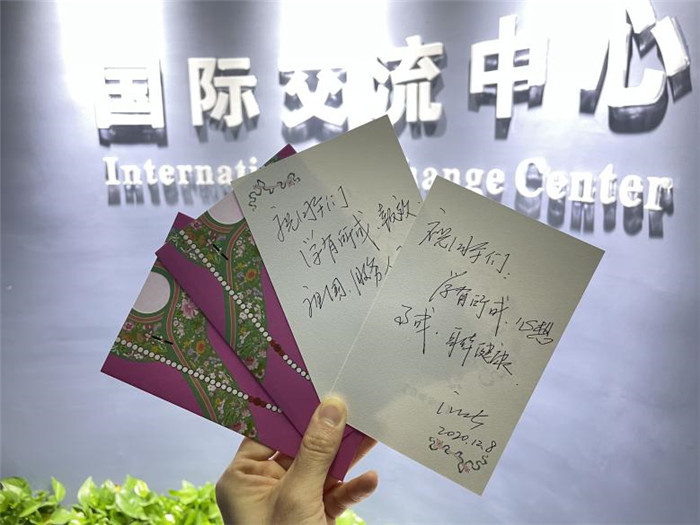 国际交流中心
International Exchange Center
祝同学们
学有所成、报效
祖国、服务人
祝同学们：
学有所成，心想
事成，身体健康。
2020.12.8